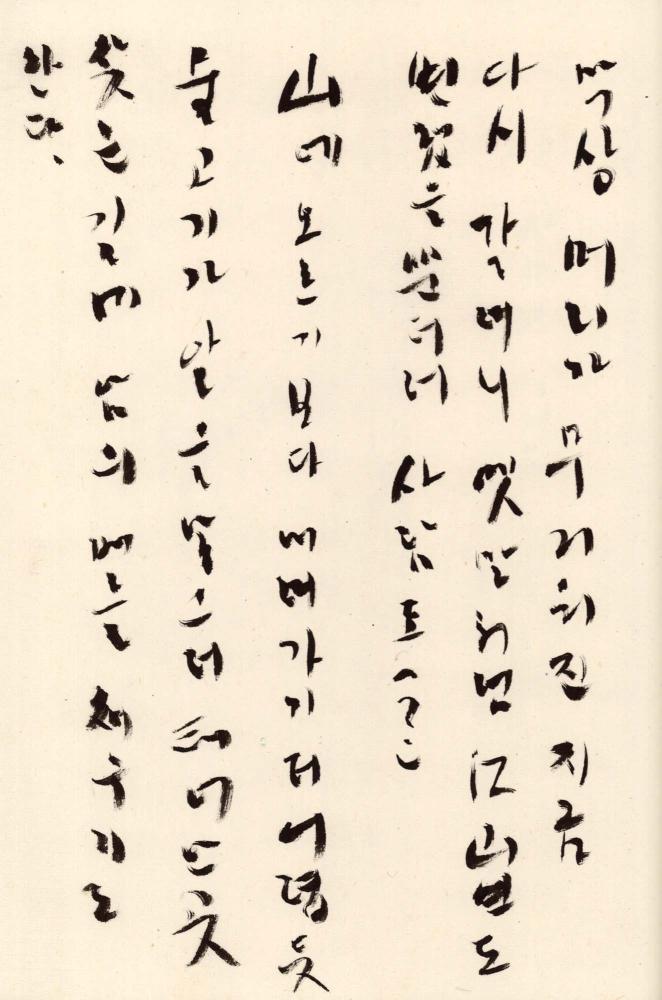 막상 머리가 무거워진 지금
다시 갈래니 옛말처럼 江山도
변했을 뿐더러 사람도
山에 오르기보다 내려가기 더 어렵듯
물고기가 알을 낳으러 태어난 곳
찾는 길에 남의 배를 채우기도
한다.